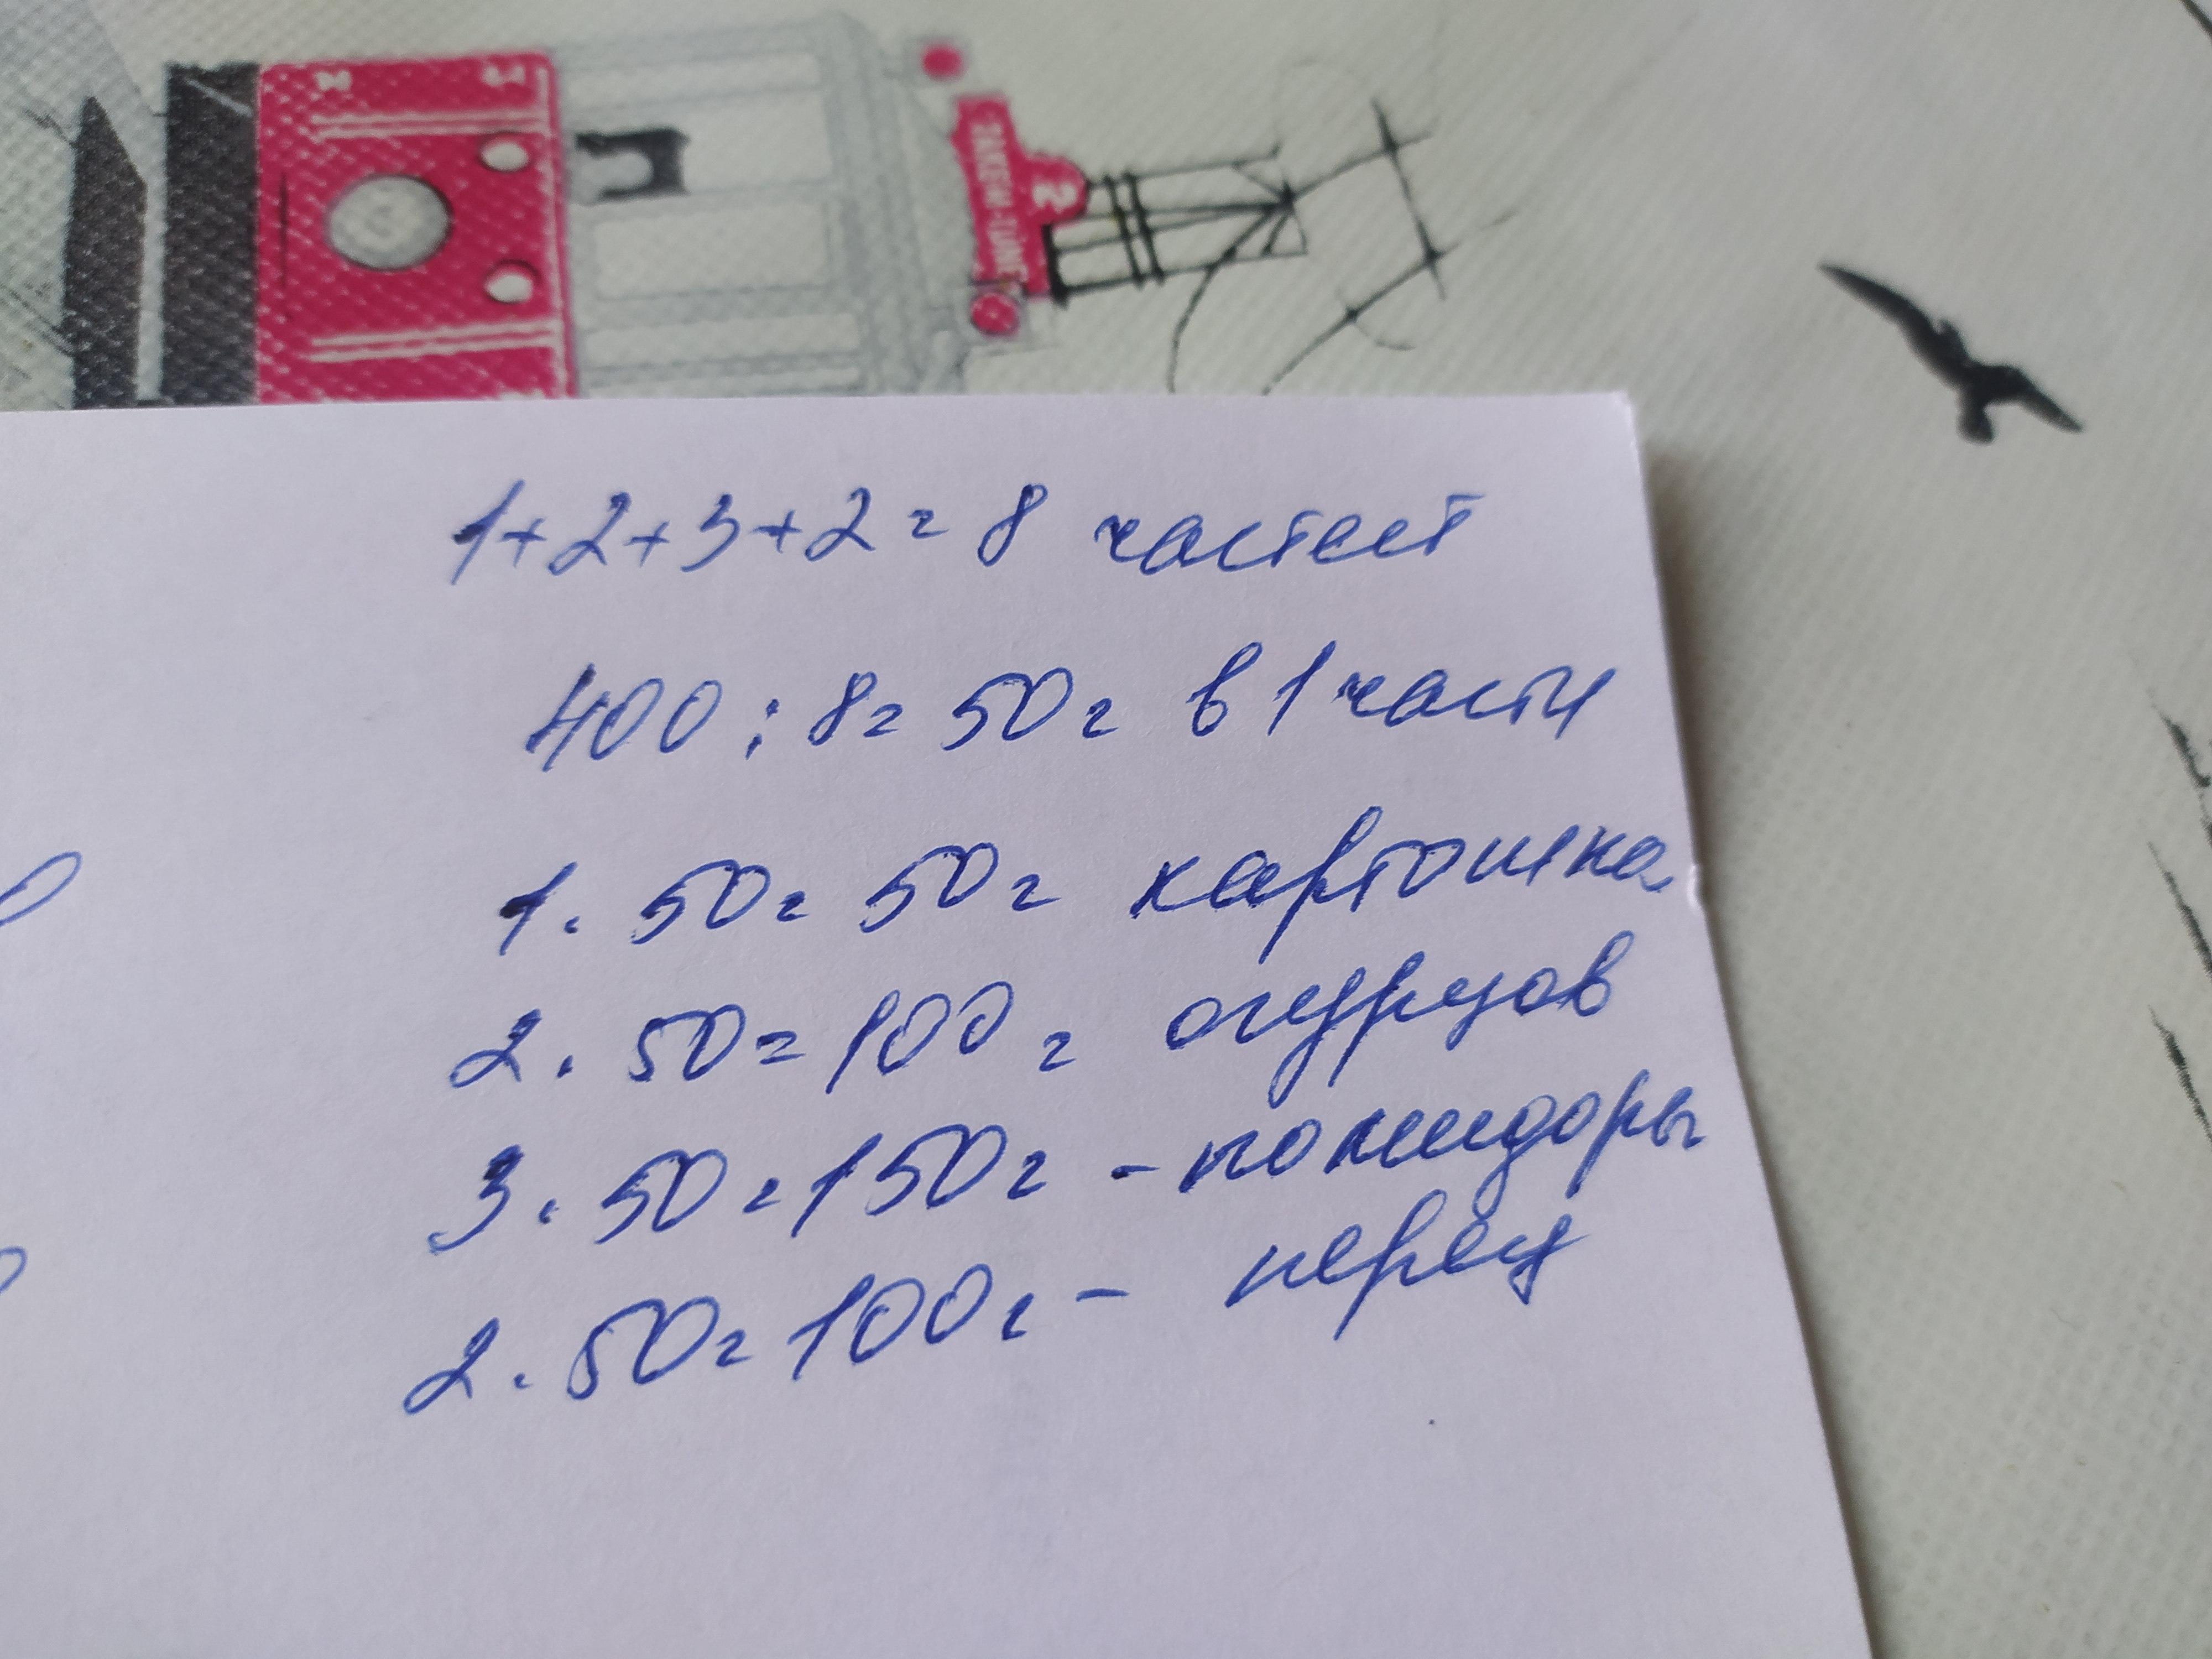 1+2+3+2=8 частест
400:8=50г в 1 части
1·50=50г картошка
2·50=100г огурцов
3·50=150г - помидоры
2·50=100г - перец
2